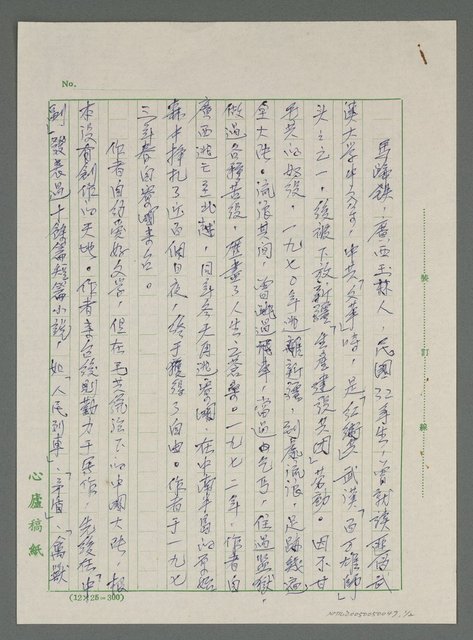 No.
馬蹄鉄,廣西玉林人,民國32年生,曾就讀西南武
漢大学中文系,中共「文革」時,是紅衛兵武漢「百万雄師」
头头之一,後被下放新疆「生產建設兵团」劳動。因不甘
毛共的奴役,一九七0年逃離新疆,到處流浪,足跡幾遍
全大陸。流浪其间,曾跳過飛車,當過乞丐,住過監獄,
做過各種苦役,歷盡了人生之苦樂。一九七二年,作者由
廣西逃亡至北越,同年冬天再逃寮國,在中南半島的原始
森林中掙扎了近百個日夜,終于獲得了自由。作者于一九七
三年春由寮國來台。
作者自幼愛好文学,但在毛共統治下的中國大陸,根
本沒有創作的天地。作者来台後則勤力于寫作,先後在「中
副」發表過十餘篇短篇小說,如「人民列車」、「矛盾」、「禽獸
裝
訂
線
心廬稿紙
(12×25=300)
NMTL20050050047, 1/2